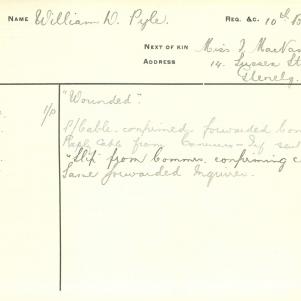 NAME William D. Pyle. REG. &C. 10th B
NEXT OF KIN Miss J. MacNa
ADDRESS 14. Sussex St
Glenelg.
1/P "Wounded".
P/Cable confirmed forwarded
Reply Cable from
"Slip" from Commr. confirming c
Same forwarded Inquirer.